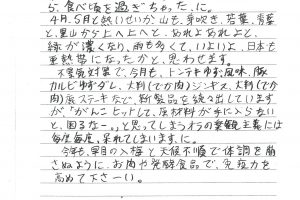 5. 食べ頃を過ぎちゃった、に。
4月、5月と熱いせいか山も、芽吹き、若葉、青葉
と、里山から上へ上へと、あれよあれよと、
緑が濃くなり、雨も多くて、いよいよ、日本も
亜熱帯になったかと、思わせます。
不景気対策で、今月も、トンテキゆず風味、豚
カルビゆずダレ、大判(でか肉)ジンギス、大判(でか
肉)豚ステキなどで、新製品を続々出しています
が、「がんこヒットして、原材料が手に入らない
と、困るなー。」と思ってしまうわらの楽観主義には
毎度毎度、呆れてしまいます、に。
今年も、早目の入梅と天候不順で体調を崩
さぬように、お肉や発酵食品で、免疫力を
高めて下さーい。